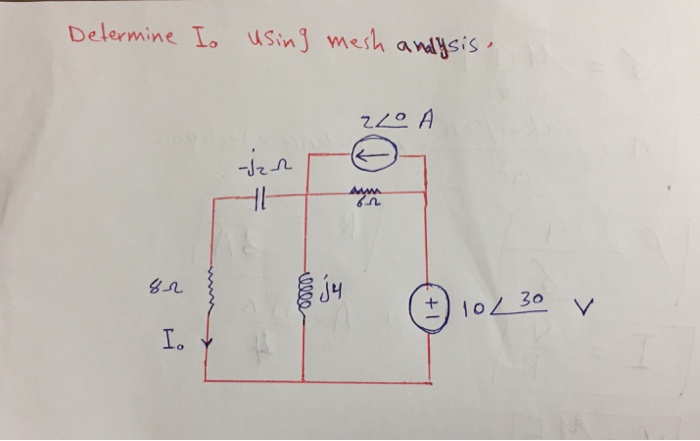 Determine Io using mesh analysis.
2∠0 A
-j2 Ω
6Ω
8Ω
j4
+
−
10∠30 V
Io